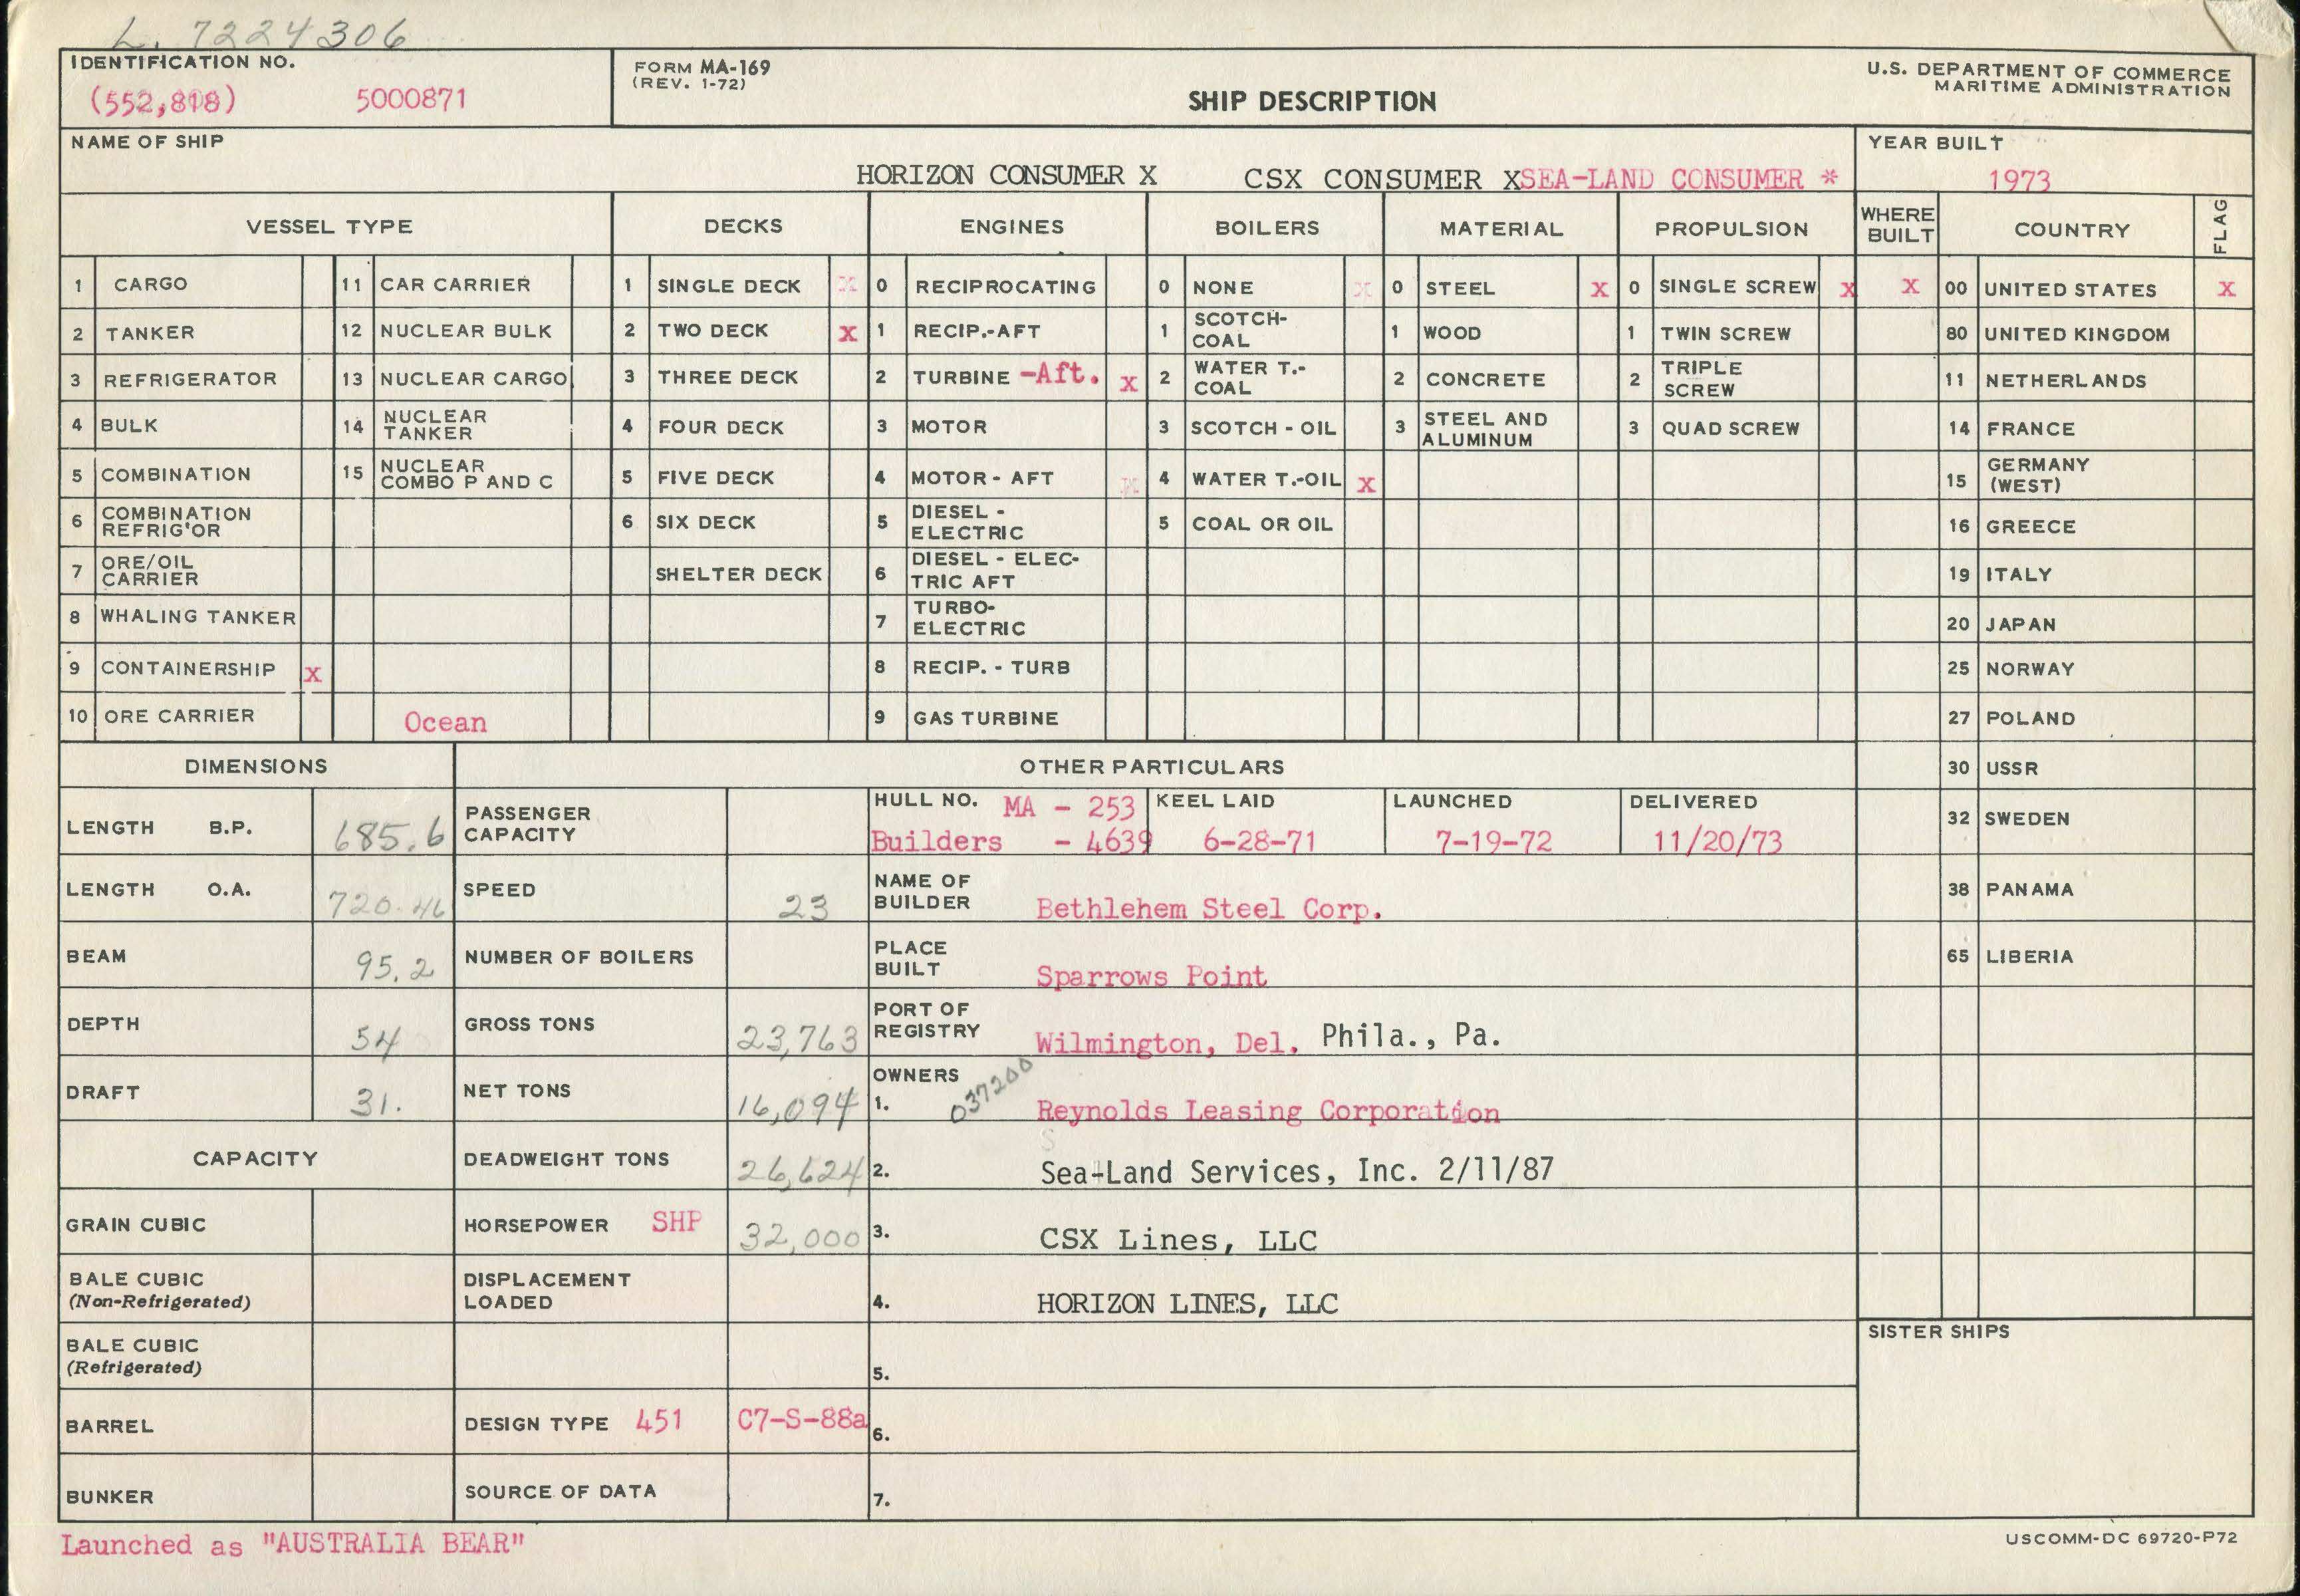 L. 7224306
IDENTIFICATION NO.
(552,818) 5000871
FORM MA-169
(REV. 1-72)
SHIP DESCRIPTION
U.S. DEPARTMENT OF COMMERCE
MARITIME ADMINISTRATION
NAME OF SHIP
HORIZON CONSUMER X CSX CONSUMER XSEA-LAND CONSUMER *
YEAR BUILT
1973
VESSEL TYPE DECKS ENGINES BOILERS MATERIAL PROPULSION WHERE BUILT COUNTRY FLAG
1 CARGO 11 CAR CARRIER 1 SINGLE DECK X 0 RECIPROCATING 0 NONE X 0 STEEL X 0 SINGLE SCREW X X 00 UNITED STATES X
2 TANKER 12 NUCLEAR BULK 2 TWO DECK X 1 RECIP.-AFT 1 SCOTCH-COAL 1 WOOD 1 TWIN SCREW 80 UNITED KINGDOM
3 REFRIGERATOR 13 NUCLEAR CARGO 3 THREE DECK 2 TURBINE -Aft. X 2 WATER T.-COAL 2 CONCRETE 2 TRIPLE SCREW 11 NETHERLANDS
4 BULK 14 NUCLEAR TANKER 4 FOUR DECK 3 MOTOR 3 SCOTCH - OIL 3 STEEL AND ALUMINUM 3 QUAD SCREW 14 FRANCE
5 COMBINATION 15 NUCLEAR COMBO P AND C 5 FIVE DECK 4 MOTOR - AFT X 4 WATER T.-OIL X 15 GERMANY (WEST)
6 COMBINATION REFRIG'OR 6 SIX DECK 5 DIESEL - ELECTRIC 5 COAL OR OIL 16 GREECE
7 ORE/OIL CARRIER SHELTER DECK 6 DIESEL - ELECTRIC AFT 19 ITALY
8 WHALING TANKER 7 TURBO-ELECTRIC 20 JAPAN
9 CONTAINERSHIP X 8 RECIP. - TURB 25 NORWAY
10 ORE CARRIER Ocean 9 GAS TURBINE 27 POLAND
DIMENSIONS OTHER PARTICULARS 30 USSR
LENGTH B.P. 685.6 PASSENGER CAPACITY HULL NO. MA - 253 KEEL LAID LAUNCHED DELIVERED 32 SWEDEN
Builders - 4639 6-28-71 7-19-72 11/20/73
LENGTH O.A. 720.46 SPEED 23 NAME OF BUILDER Bethlehem Steel Corp. 38 PANAMA
BEAM 95.2 NUMBER OF BOILERS PLACE BUILT Sparrows Point 65 LIBERIA
DEPTH 54 GROSS TONS 23,763 PORT OF REGISTRY Wilmington, Del. Phila., Pa.
DRAFT 31. NET TONS 16,094 OWNERS 1. 037200 Reynolds Leasing Corporation
CAPACITY DEADWEIGHT TONS 26,624 2. Sea-Land Services, Inc. 2/11/87
GRAIN CUBIC HORSEPOWER SHP 32,000 3. CSX Lines, LLC
BALE CUBIC (Non-Refrigerated) DISPLACEMENT LOADED 4. HORIZON LINES, LLC
BALE CUBIC (Refrigerated) 5. SISTER SHIPS
BARREL DESIGN TYPE 451 C7-S-88a 6.
BUNKER SOURCE OF DATA 7.
Launched as "AUSTRALIA BEAR"
USCOMM-DC 69720-P72